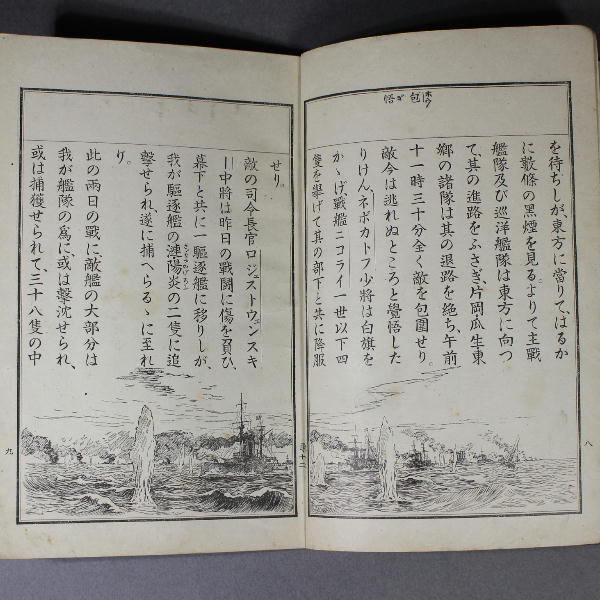 包 ホウ が 悟
を待ちしが、東方に當りて、はるか
に數條の黑煙を見る。よりて主戰
艦隊及び巡洋艦隊は東方に向つ
て、其の進路をふさぎ、片岡、瓜生、東
鄉の諸隊は其の退路を絶ち、午前
十一時三十分全く敵を包圍せり。
敵今は逃れぬところと覺悟した
りけん、ネボカトフ少將は白旗を
かゝげ、戰艦ニコライ一世以下四
隻を擧げて其の部下と共に降服
八
第十二
せり。
敵の司令長官ロジェストヴェンスキ
ー中將は昨日の戰鬪に傷を負ひ、
幕下と共に一驅逐艦に移りしが、
我が驅逐艦の漣、陽炎の二隻に追
さゞなみ かげろふ
擊せられ、遂に捕へらるゝに至れ
り。
此の兩日の戰に、敵艦の大部分は
我が艦隊の爲に、或は擊沈せられ、
或は捕獲せられて、三十八隻の中
九